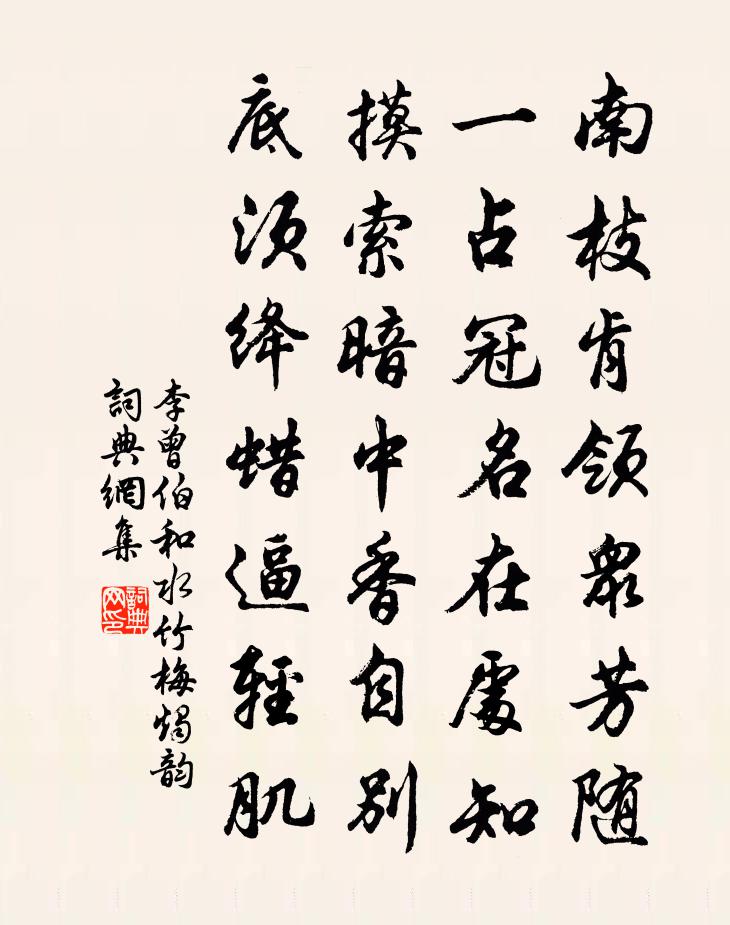 南枝肯领衆芳随
一占冠名在處知
摸索暗中香自别
底须绛蜡逼轻肌
李曾伯和水竹梅烛韵
詞典網集
詞典网印